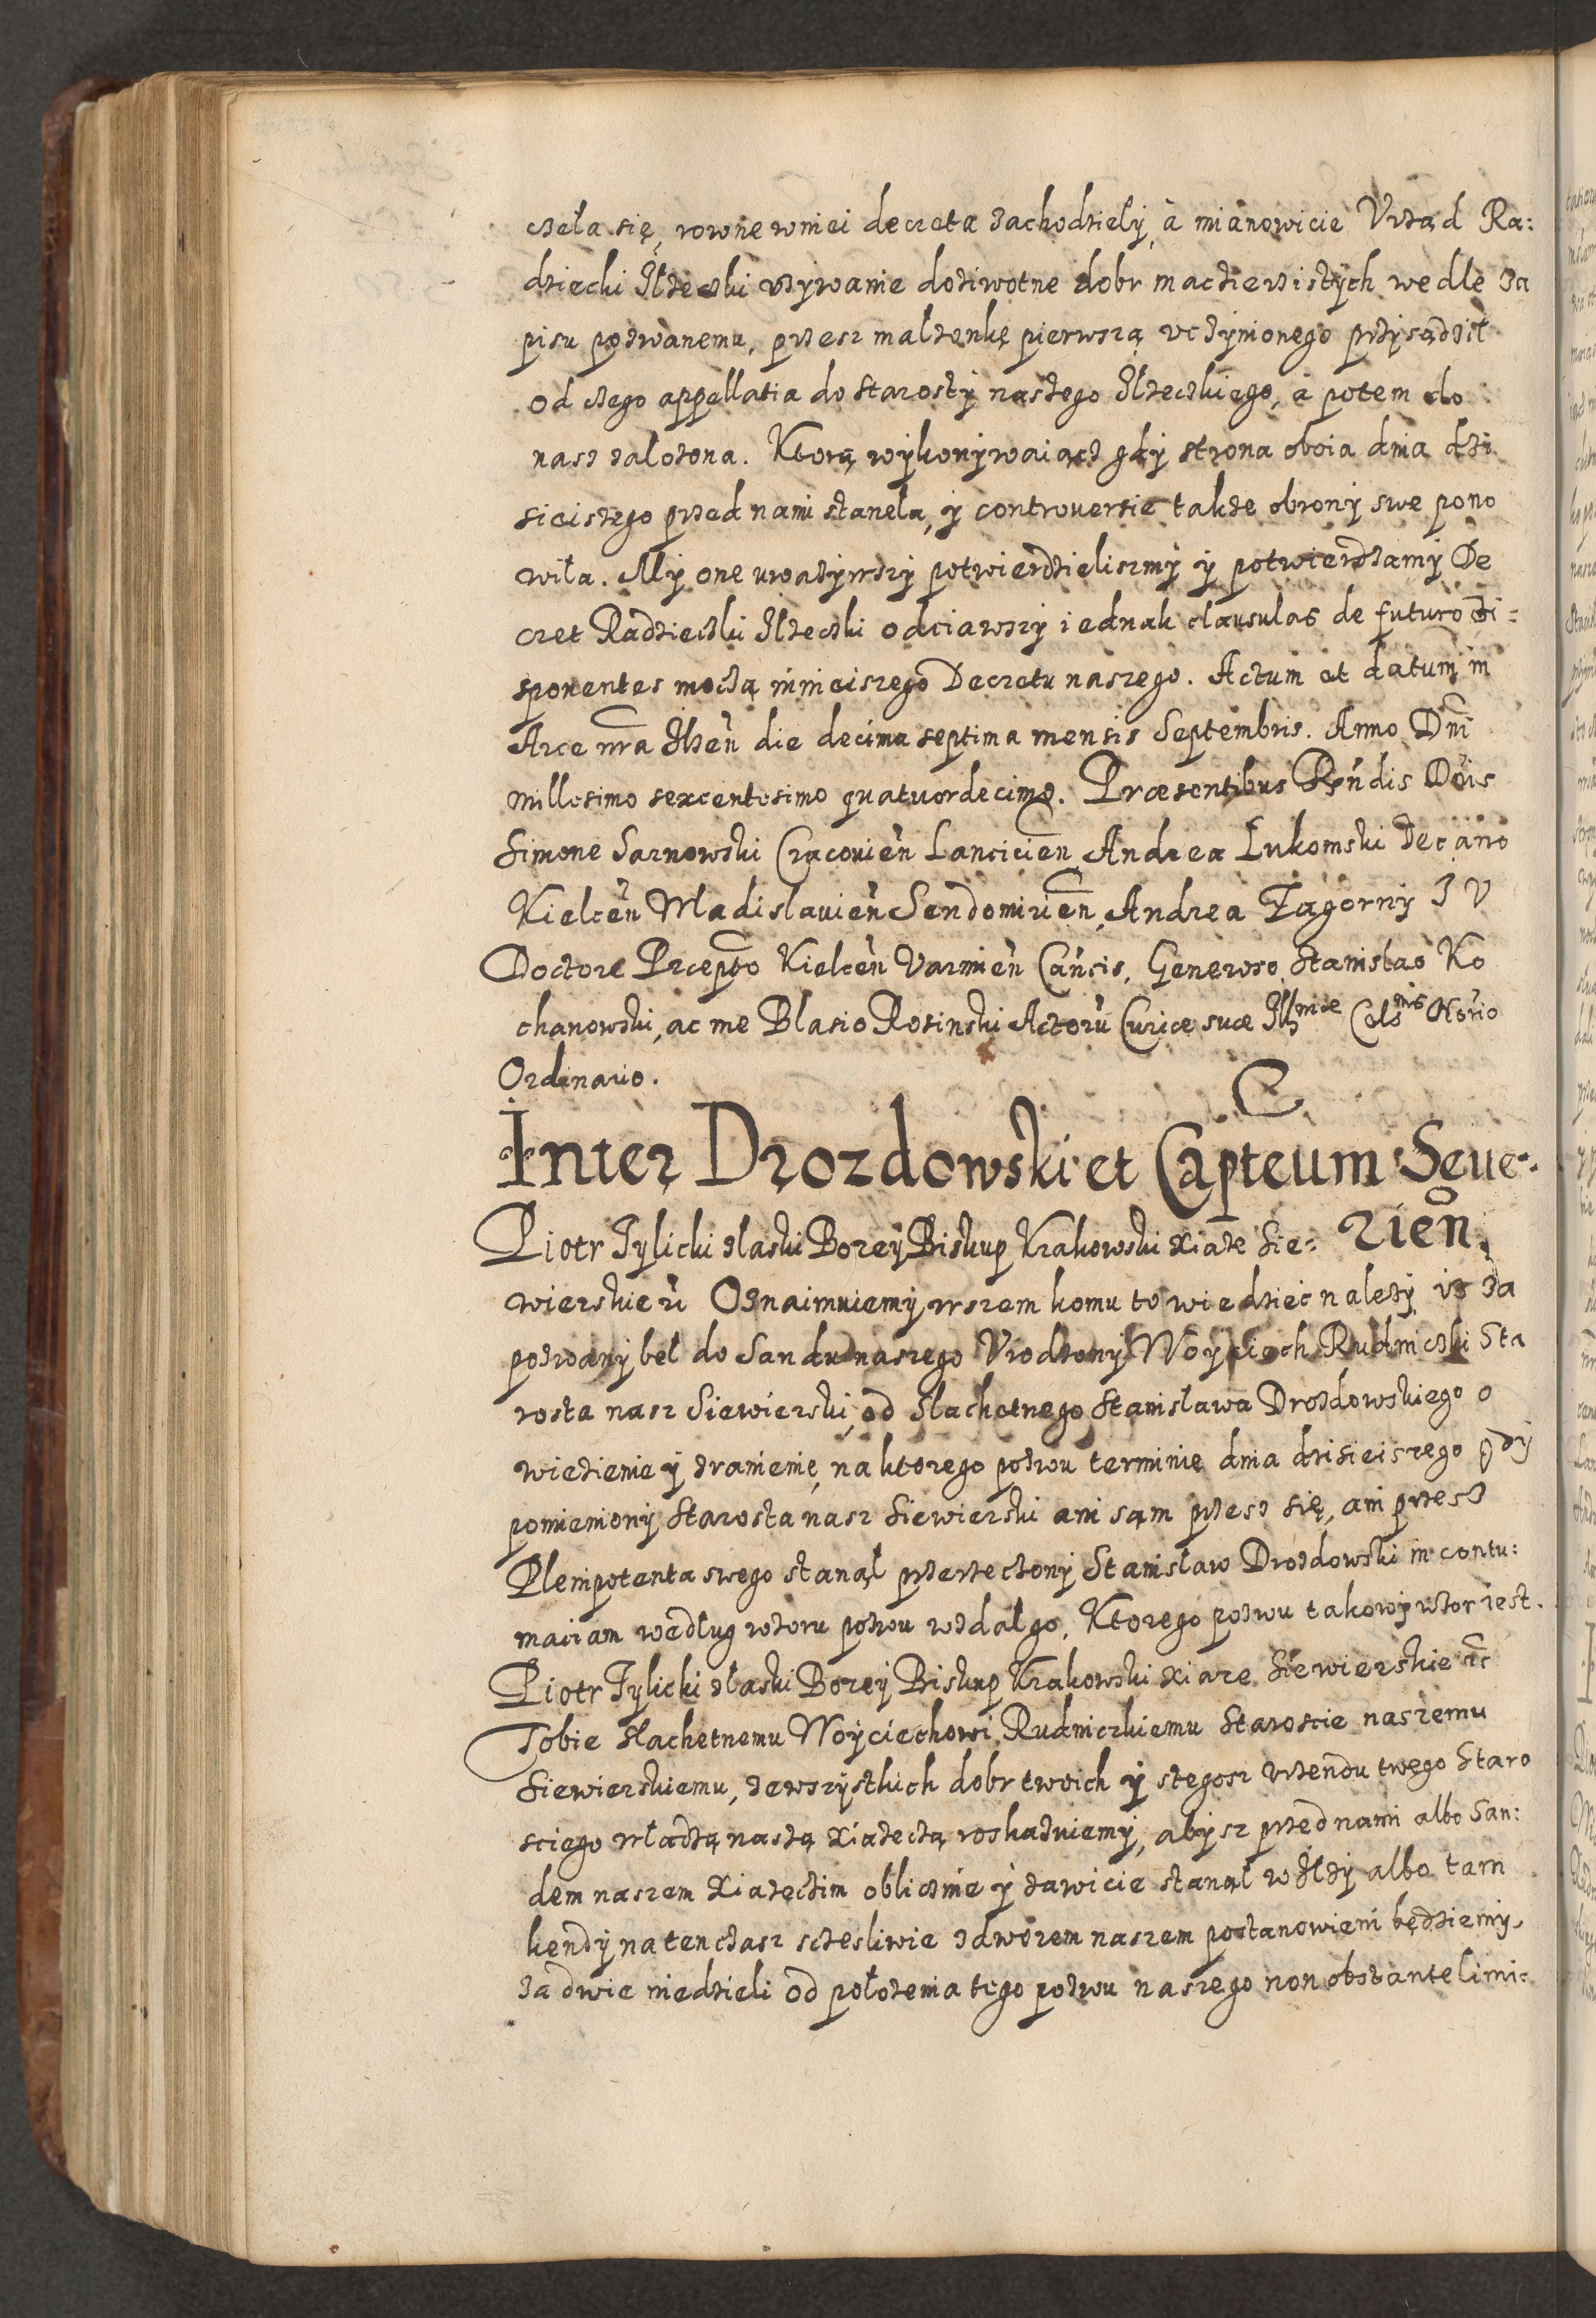 czeła się, rowne wniei decreta zachodzieły, à mianowicie Vrząd Ra:
dziecki Iłzecki vzywanie doziwotne dobr macierzistych wedle za
pisu pozwanemu, przesz malzonkę pierwszą vczynionego przysądził
od czego appellatia do starosty naszego Ilzeckiego, à potem do
nasz założona. Ktorą wykonywaiącz gdy strona oboia dnia dzi
sieiszego przed nami stanela, y controuersie takze obrony swe pono
wiła. My one uwazywszy potwierdzieliszmy y potwierdzamy De
cret Radziecki Ilzecki odciawszy iednak clausulas de futuro di=
sponentes moczą ninieiszego Decretu naszego. Actum et datum in
Arce nra Ilzen die decima septima mensis Septembris. Anno Dni
millesimo sexcentesimo quatuordecimo. Præsentibus Rndis Dnis
Simone Sarnowski Cracouien Lancicien Andrea Lukomski Decano
Kielcen Wladislauien Sendomirien, Andrea Zagorny I V
Doctore Præpto Kielcen Varmien Cancis, Generoso Stanislao Ko
chanowski, ac me Blasio Rosinski Actoru Curiæ suæ Illmæ Celsnis Norio
Ordinario.
Inter Drozdowski et Capteum Seue=
rien.
Piotr Tylicki zlaski Bozey Biskup Krakowski Xiaze Sie=
wierskie rc Oznaimuiemy wszem komu to wiedzieć nalezy iz za
pozwany beł do Sandu naszego Vrodzony Woyciech Rudniczki Sta
rosta nasz Siewierski, od Slachetnego Stanisława Drozdowskiego o
wiezienie y zranienie, na ktorego pozwu terminie dnia dzisieiszego gdy
pomieniony Starosta nasz Siewierski ani sąm przesz się, ani przesz
Plenipotenta swego stanął przerzeczony Stanisław Drozdowski in contu:
maciam według wzoru pozwu wzdał go, Ktorego pozwu takowy wzor iest.
Piotr Tylicki złaski Bozey Biskup Krakowski Xiaze Siewierskie rc
Tobie slachetnemu Woyciechowi Rudniczkiemu Staroscie naszemu
Siewierskiemu, zewszystkich dobr twoich y ztegosz vrzendu twego Staro
sciego władzą naszą Xiazeczą roskazuiemy, abysz przed nami albo San:
dem naszem Xiazeczim oblicznie y zawicie stanął w Iłzy albo tam
kendy na ten czasz sczesliwie zdworem naszem postanowieni będziemy,
za dwie niedzieli od położenia tego pozwu naszego non obstante limi=